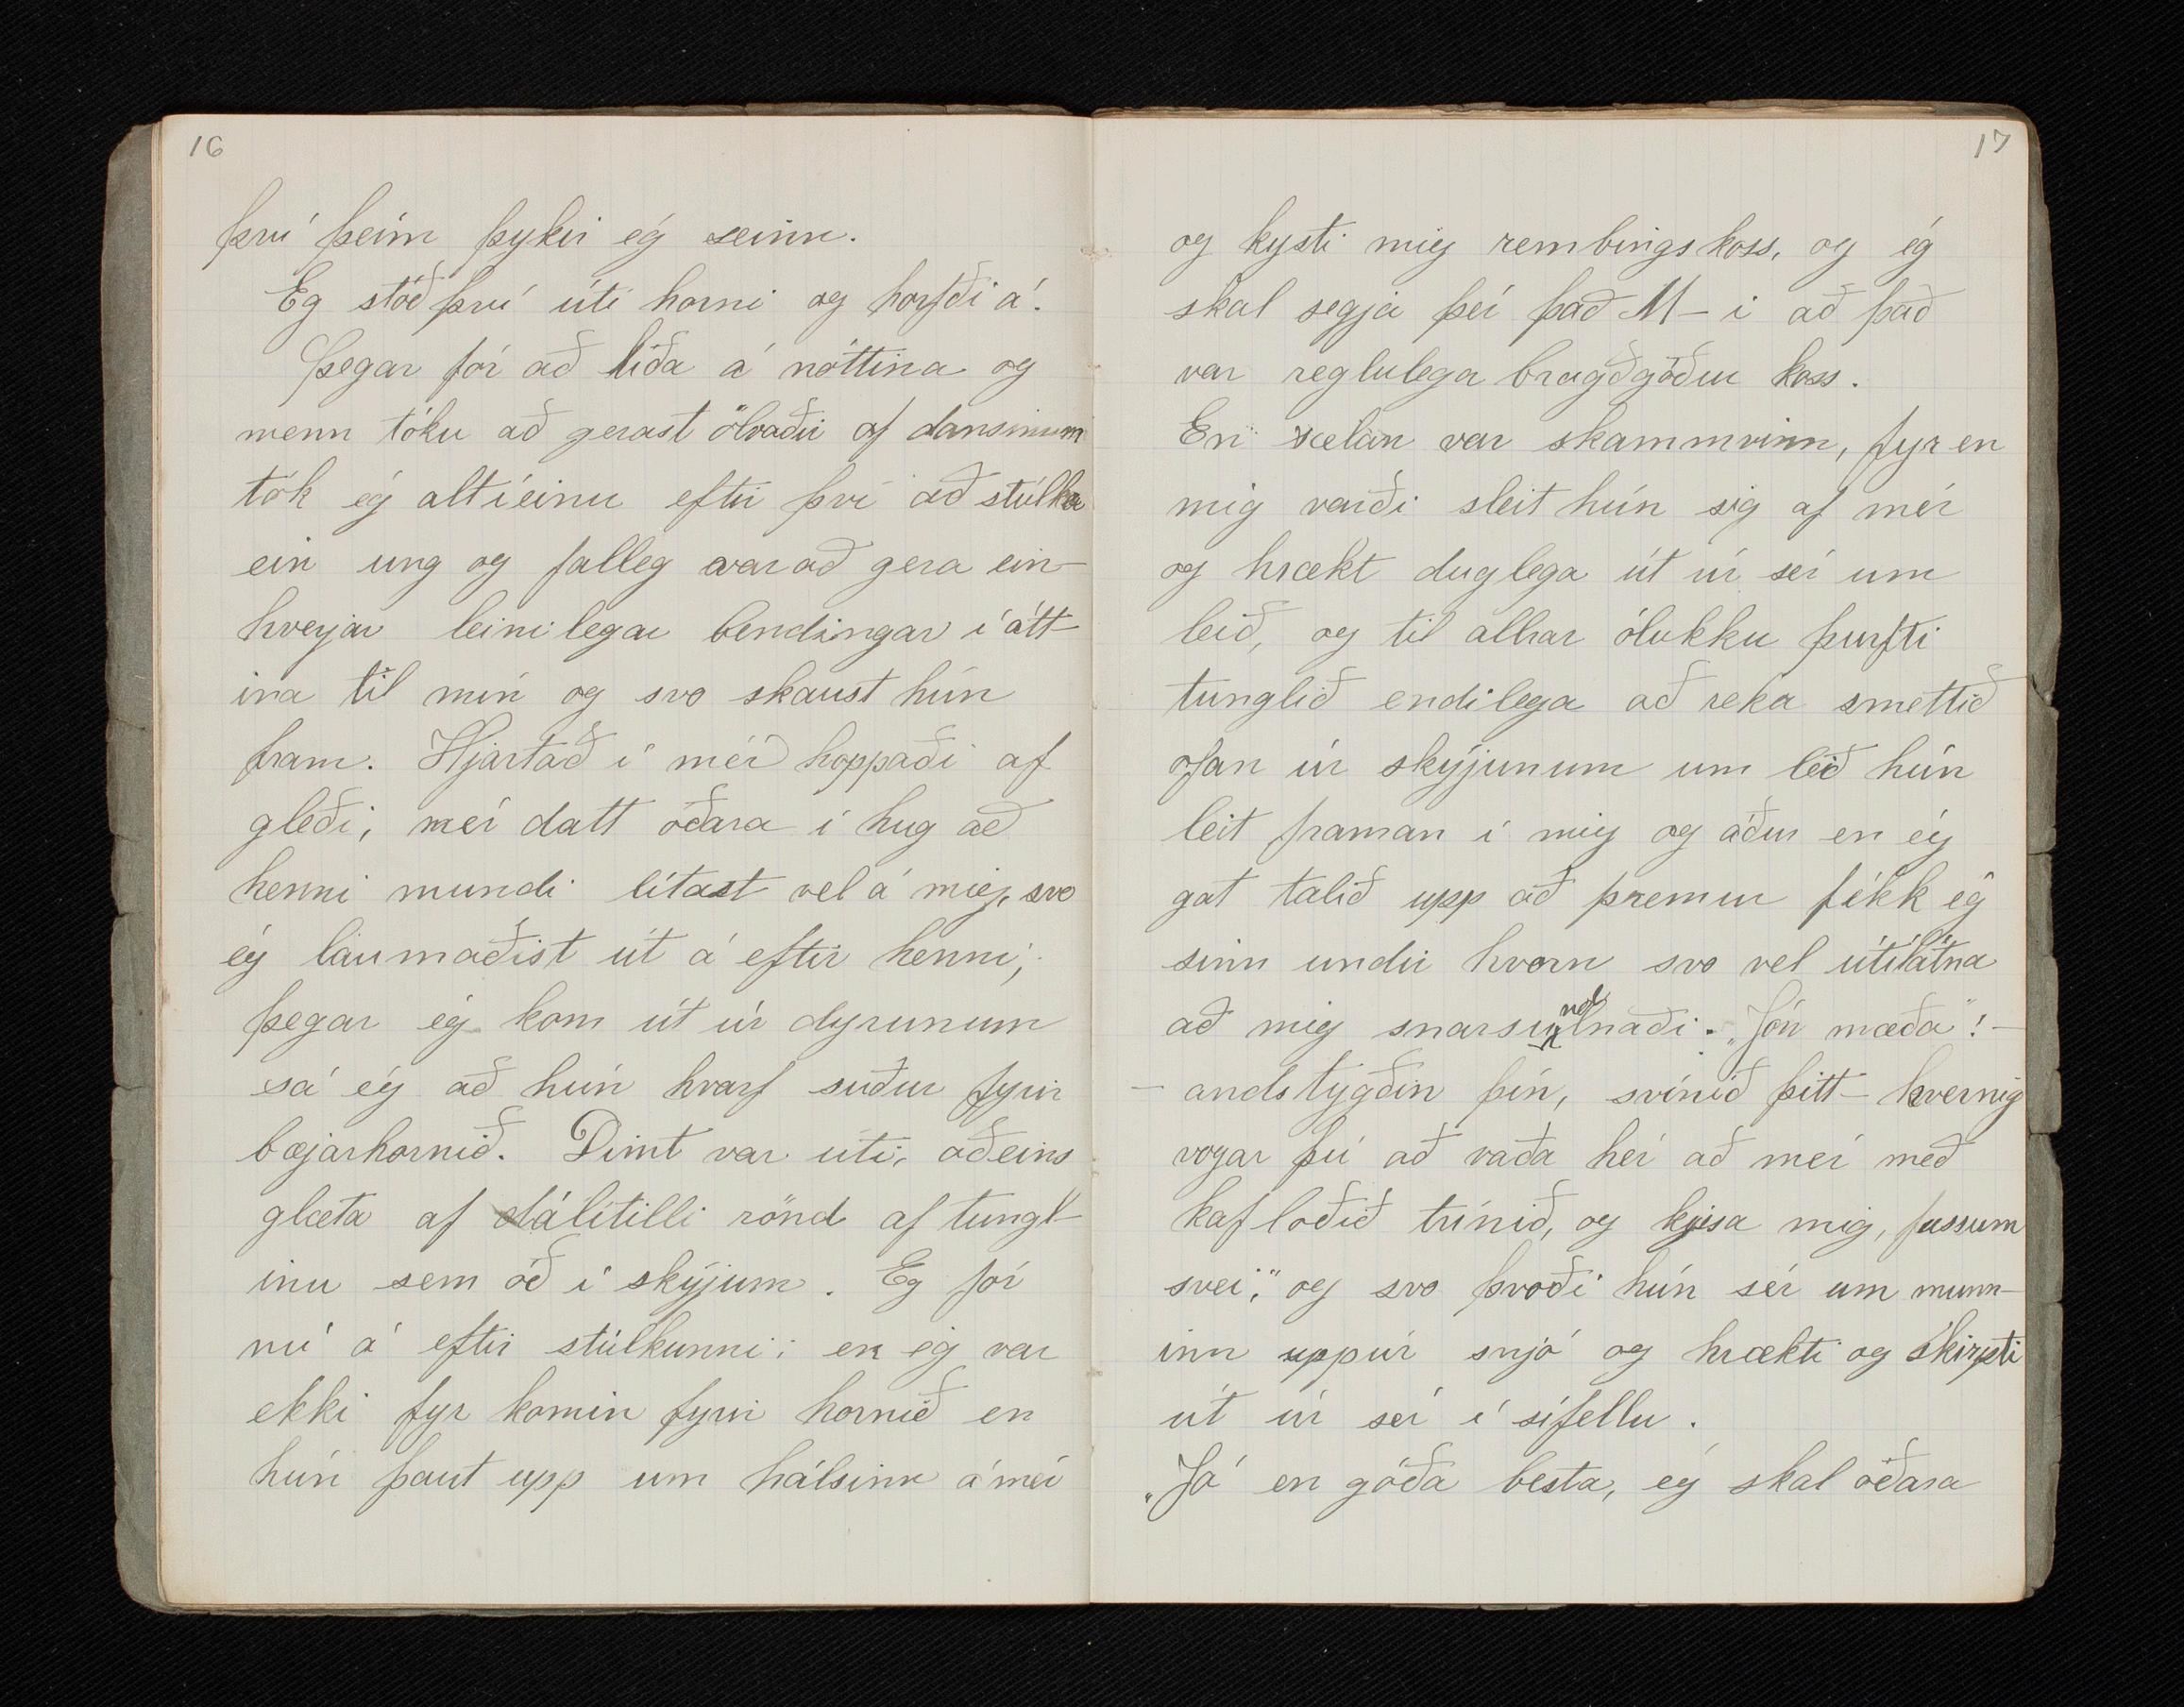 16
því þeim þykir ég seinn.
Eg stóð því úti horni og horfði á.
Þegar fór að líða á nóttina og
menn tóku að gerast ölvaðir af dansinum
tók ég altíeinu eftir því að stúlka
ein ung og falleg var að gera ein-
hverjar leinilegar bendingar í átt-
ina til mín og svo skaust hún
fram. Hjartað í mér hoppaði af
gleði, mér datt óðara í hug að
henni mundi lítast vel á mig, svo
ég laumaðist út á eftir henni;
þegar ég kom út úr dyrunum
sá ég að hún hvarf suður fyrir
bæjarhornið. Dimt var úti, aðeins
glæta af dálítilli rönd af tungl-
inu sem óð í skýjum. Eg fór
nú á eftir stúlkunni; en ég var
ekki fyr komin fyrir hornið en
hún þaut upp um hálsinn á mér
17
og kysti mig rembings koss, og ég
skal segja þér það M-i að það
var reglulega bragðgóður koss.
En sælan var skammvinn, fyr en
mig varði sleit hún sig af mér
og hrækt duglega út úr sér um
leið, og til allrar ólukku þurfti
tunglið endilega að reka smettið
ofan úr skýjunum um leið hún
leit framan í mig og áður en ég
gat talið upp að þremur fékk ég
sinn undir hvorn svo vel útílátna
að mig snarsundlnaði. „Jón mæða"! -
- andstygðin þín, svínið þitt - hvernig
vogar þú að vaða hér að mér með
kafloðið trínið, og kjssa mig, fussum
svei," og svo þvoði hún sér um munn-
inn uppúr snjó og hrækti og skirpti
út úr sér í sífellu.
„Já en góða besta, ég skal óðara